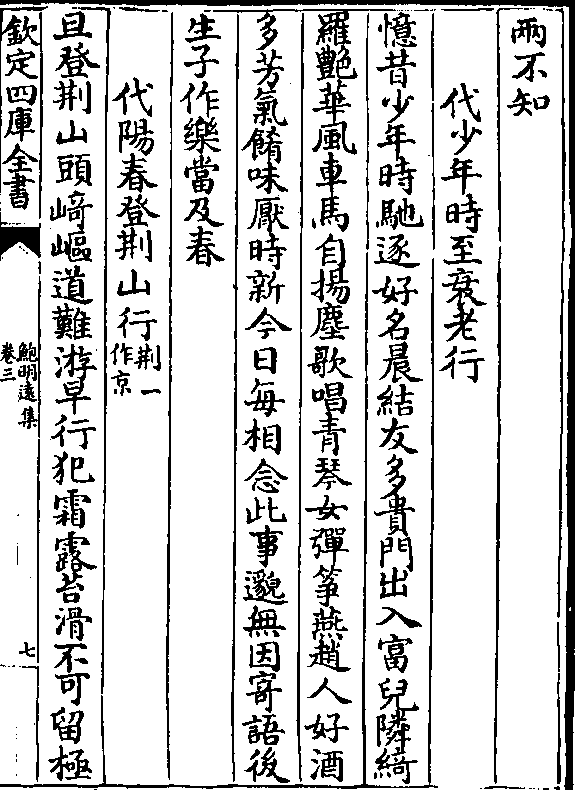 兩不知
代少年時至衰老行
憶昔少年時馳逐好名晨結友多貴門出入富兒隣綺
羅艷華風車馬自揚塵歌唱青琴女彈箏燕趙人好酒
多芳氣餚味厭時新今日每相念此事邈無因寄語後
生子作樂當及春
代陽春登荆山行荆一作京
且登荆山頭崎嶇道難游早行犯霜露苔滑不可留極
欽定四庫全書
鮑明遠集
卷三
七